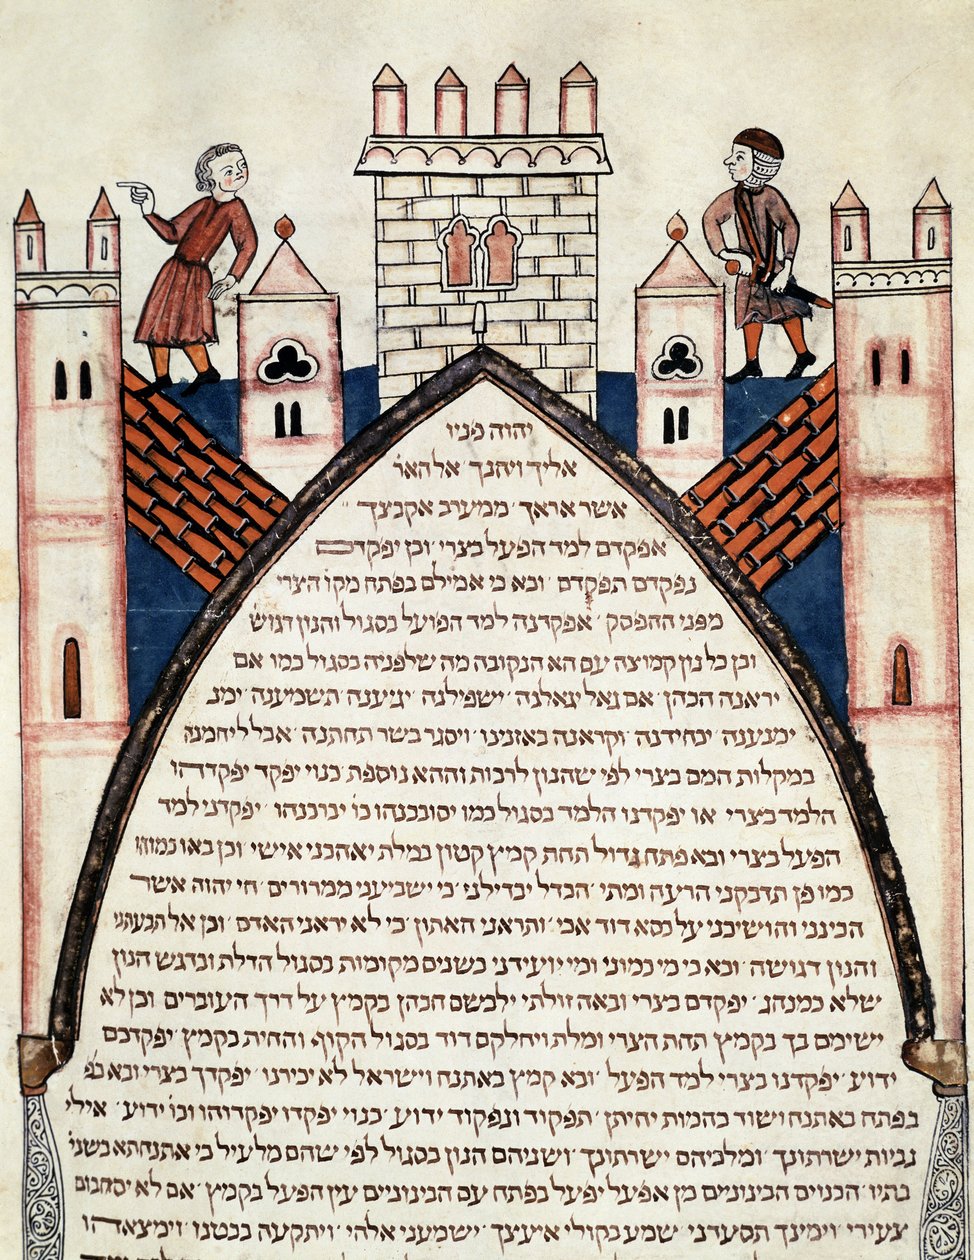 יהוה פניו
אליך ויחנך אל הא
אשר אראך ממערב אקבצך
אפקדם למד הפעל בצרי וכן יפקדם
נפקדם תפקדם ובא כי אמילם בפתח מקו הצרי
מפני ההפסק אפקדנה למד הפועל בסגול והנון דגוש
וכן כל נון קמוצה עם הא הנקובה מה שלפניה בסגול כמו אם
יראנה הכהן אם גאל יגאלנה ישפילנה יגיענה תשמיענה
ימנענה יכחידנה וקראנה באזנינו ויסגר בשר תחתנה אבל ליחמנה
במקלות המם בצרי לפי שהנון לרבות וההא נוספת כנוי יפקד יפקדהו
הלמד בצרי או יפקדנו הלמד בסגול כמו יסובבנהו יפקדני למד
הפעל בצרי ובא פתח גדול תחת קמיץ קטון במלת יאהבני אישי וכן באו
כמו פן תדבקני הרעה ומתי הבדל יבדילני כי ישביעני ממרורים חי יהוה אשר
הכינני והושיבני על כסא דוד אבי ותראני האתון כי לא יראני האדם וכן אל תבעתני
והנון דגושה ובא כי מי כמוני ומי יועידני בשנים מקומות בסגול הדלת ובדגש הנון
שלא כמנהג יפקדם בצרי ובאה זולתי ילבשם הכהן בקמץ על דרך העוברים וכן לא
ישימם בך בקמץ תחת הצרי ומלת ויחלקם דוד בסגול הקוף והחית בקמץ יפקדכם
ידוע יפקדנו בצרי למד הפעל ובא קמץ באתנח וישראל לא יכירנו יפקדך בצרי ובא
בפתח באתנח וישוד בהמות יחיתן תפקוד ונפקוד ידוע כנוי יפקדו יפקדוהו ידוע אילי
נביות ישרתונך ומלכיהם ישרתונך ושניהם הנון בסגול לפי שהם מלעיל כי אתנחתא
הכנוים הבינונים מן אפעל יפעל בפתח עם הבינונים עין הפעל בקמץ אם לא יסחבום
צעירי וימינך תסעדני שמע בקולי איעצך ישמעני אלהי ויתקעה בבטנו וימצאהו